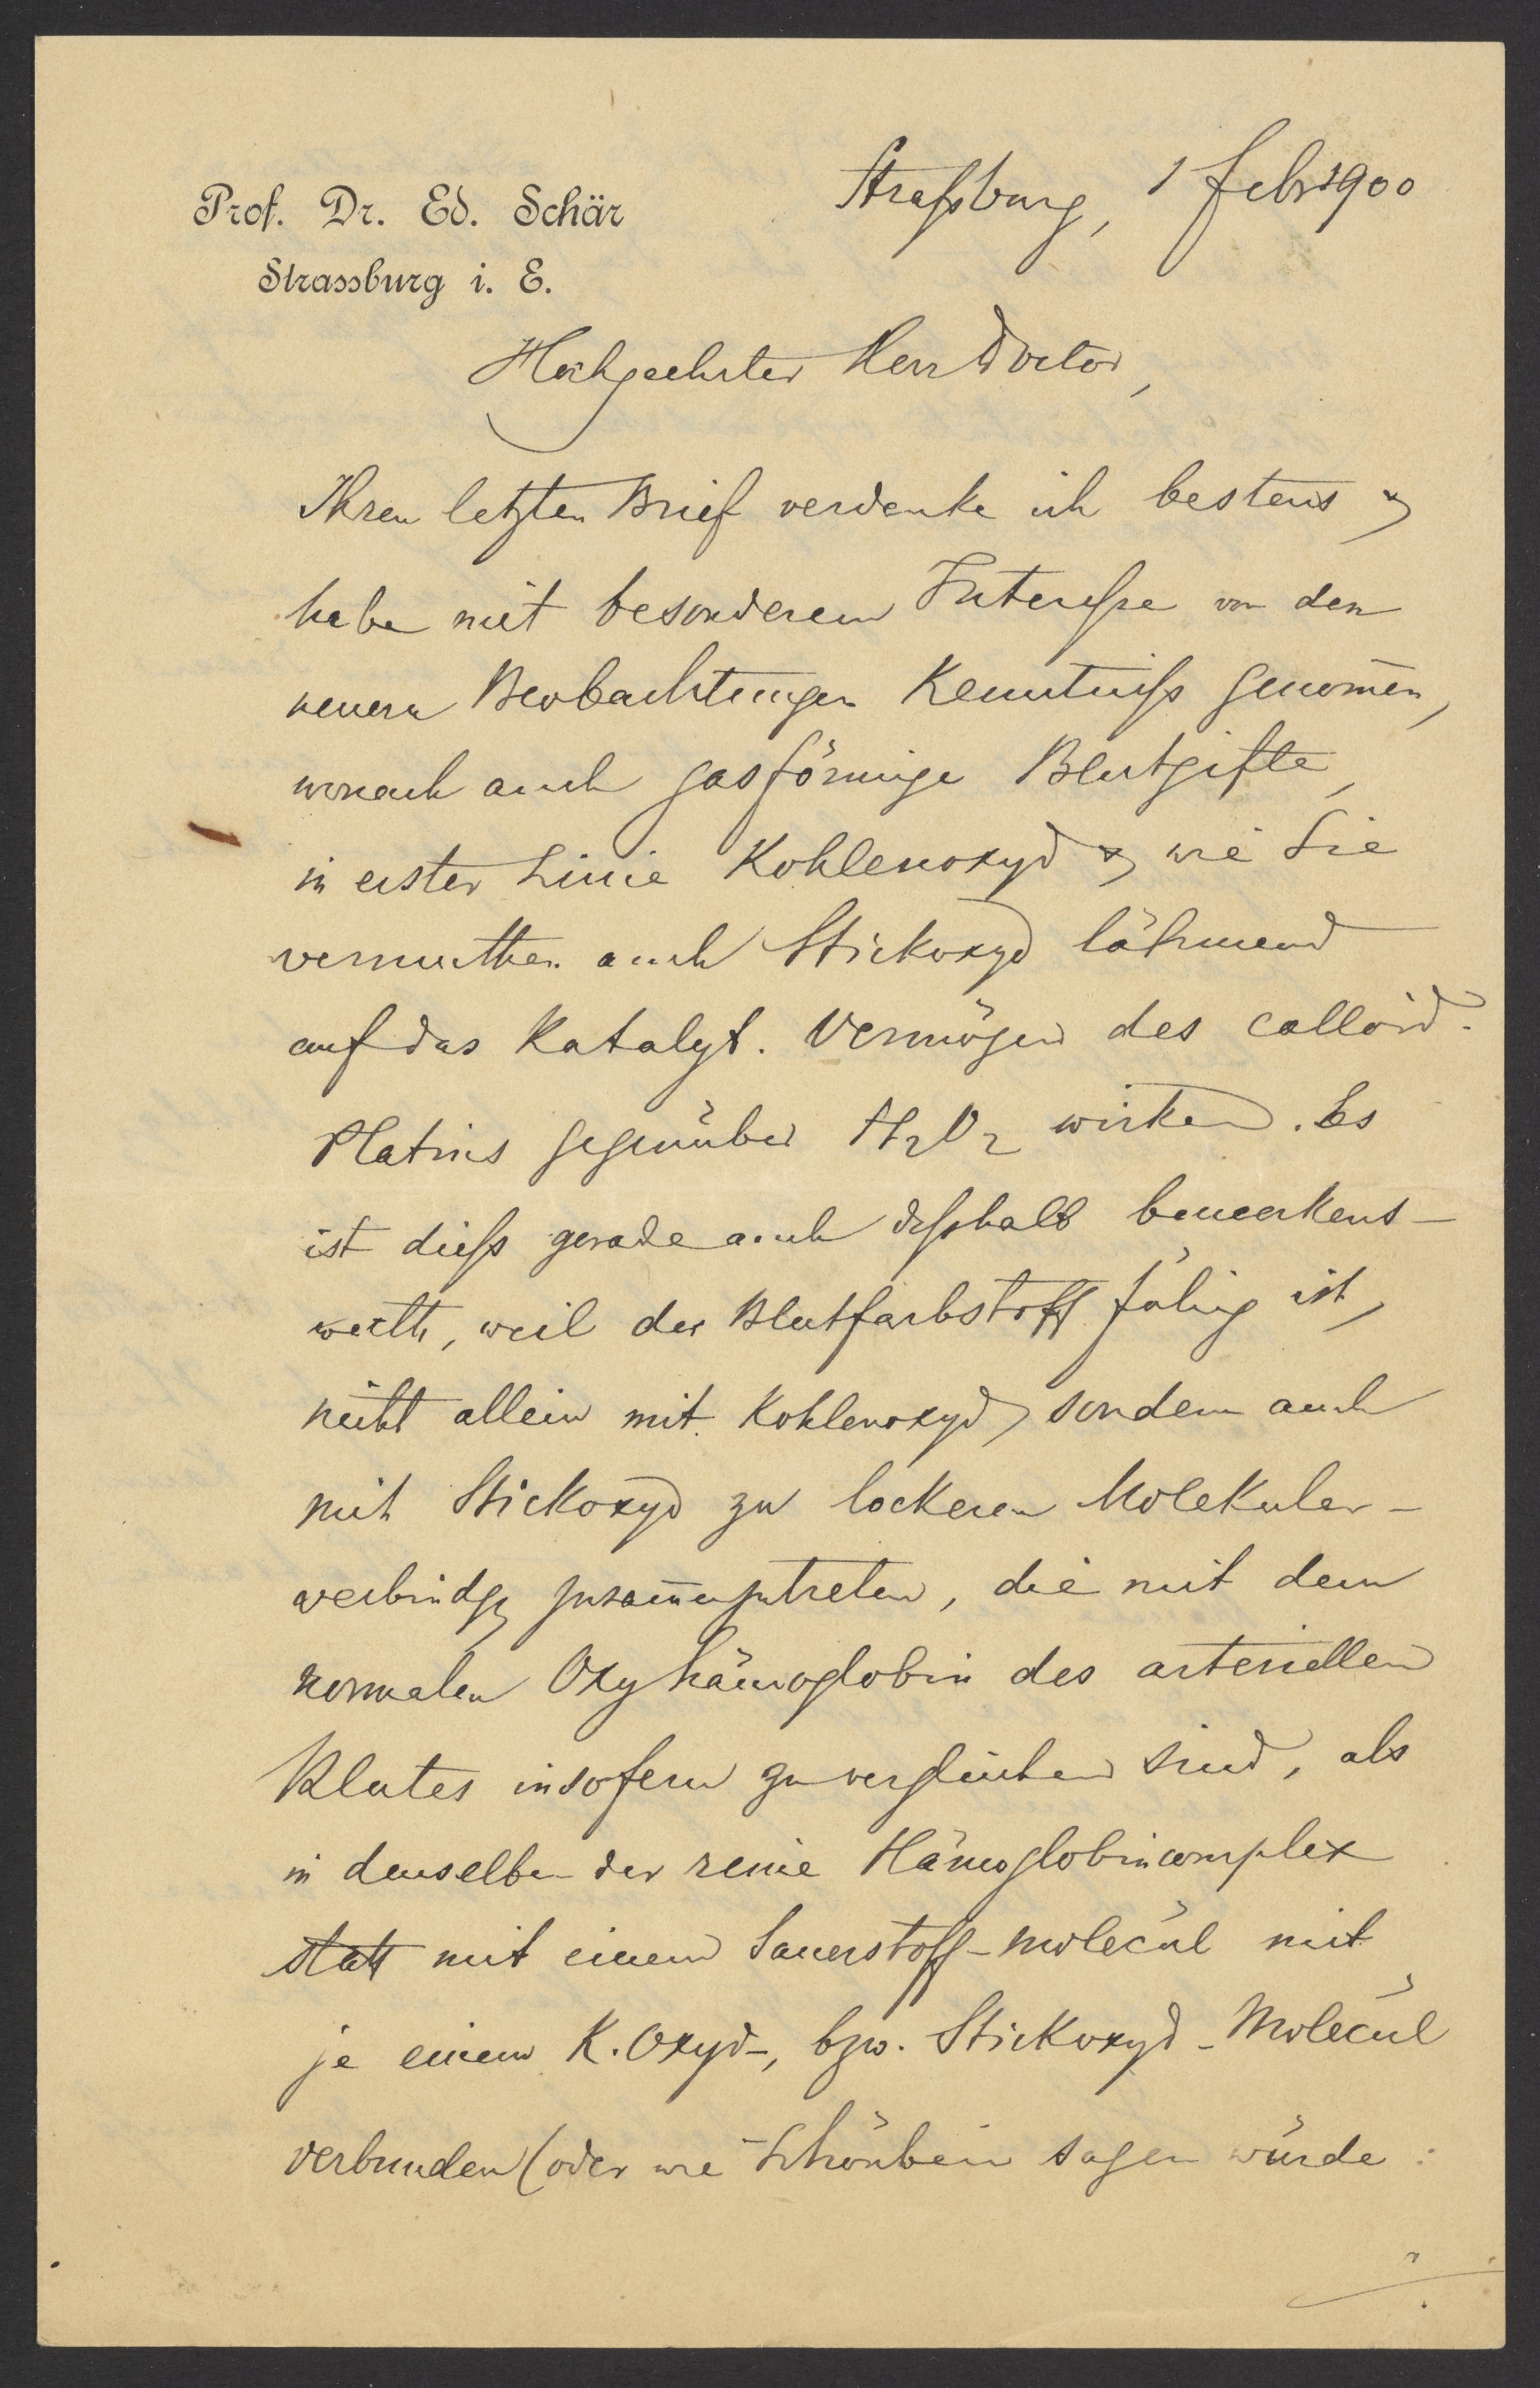 Prof. Dr. Ed. Schär
Strassburg i. E.
Straßburg, 1 Febr 1900
Hochgeehrter Herr Doctor,
Ihren letzten Brief verdanke ich bestens &
habe mit besonderem Interesse von den
neuern Beobachtungen Kenntniß genom̅en,
wonach auch gasförmige Blutgifte,
in erster Linie Kohlenoxyd & wie Sie
vermuthen auch Stickoxyd lähmend
auf das Katalyt. Vermögen des colloid.
Platins gegenüber H2O2 wirken. Es
ist dieß gerade auch deßhalb bemerkens-
werth, weil der Blutfarbstoff fähig ist,
nicht allein mit Kohlenoxyd, sondern auch
mit Stickoxyd zu lockeren Molekular-
verbindg zusam̅enzutreten, die mit dem
normalen Oxyhämoglobin des arteriellen
Blutes insofern zu vergleichen sind, als
in denselben der reine Hämoglobincomplex
statt mit einem Sauerstoff-Molecül mit
je einem K.Oxyd-, bzw. Stickoxyd-Molecül
verbunden (oder wie Schönbein sagen würde: